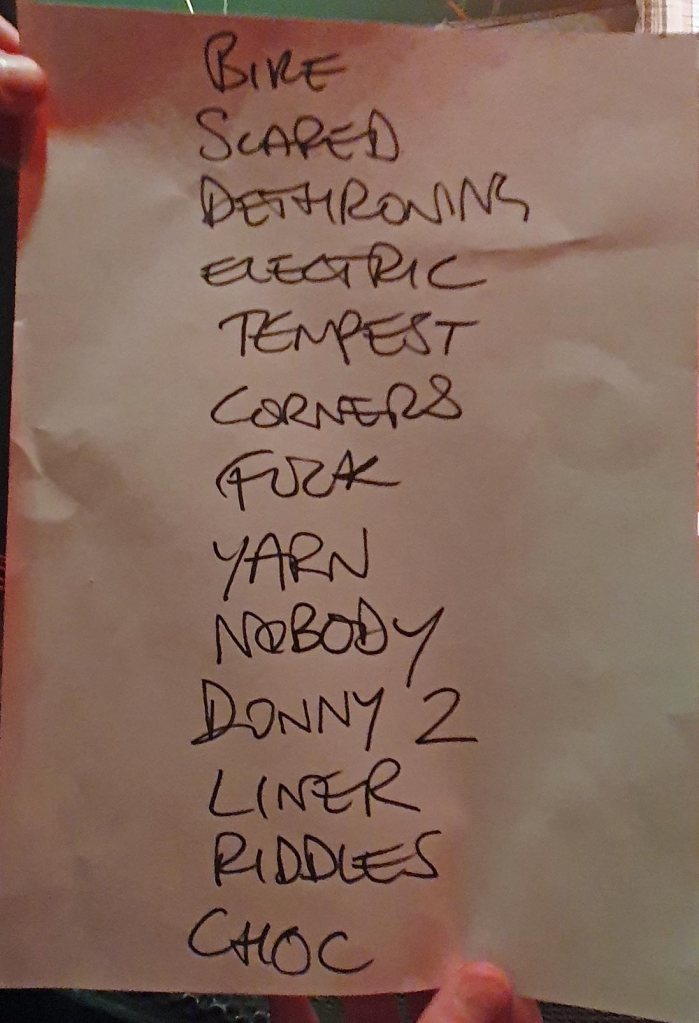 BIKE
SCARED
DETHRONING
ELECTRIC
TEMPEST
CORNERS
FUZAK
YARN
NOBODY
DONNY 2
LINER
RIDDLES
CHOC